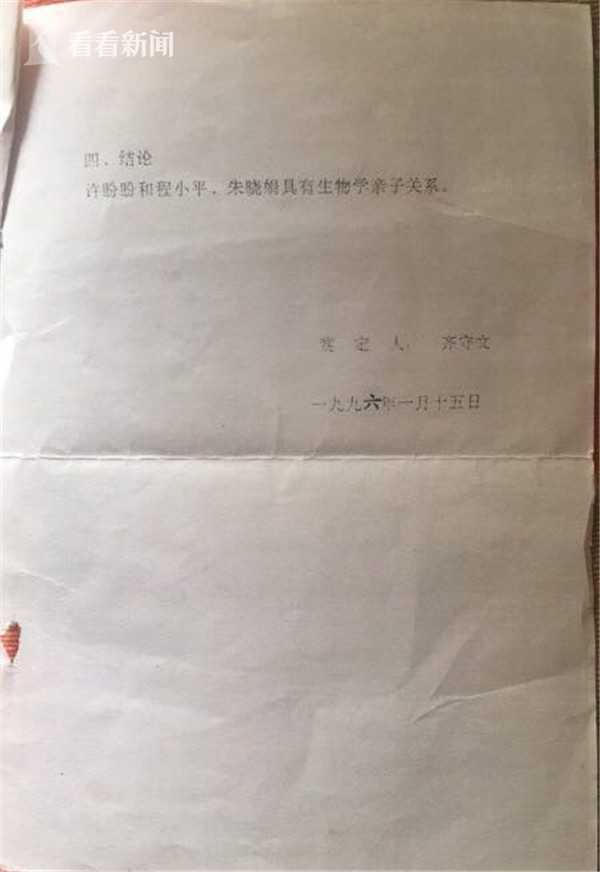 看看新闻
四、结论
许盼盼和程小平、朱晓娟具有生物学亲子关系。
鉴 定 人： 齐守文
一九九六年一月十五日